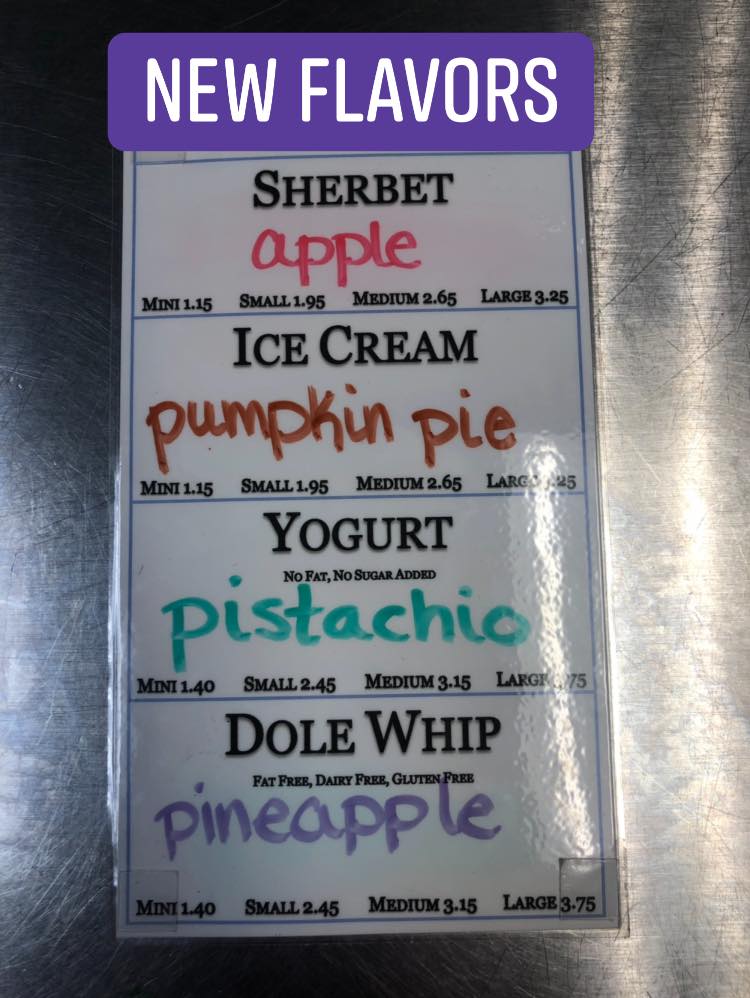 NEW FLAVORS
SHERBET
apple
MINI 1.15 SMALL 1.95 MEDIUM 2.65 LARGE 3.25
ICE CREAM
pumpkin pie
MINI 1.15 SMALL 1.95 MEDIUM 2.65
YOGURT
NO FAT, NO SUGAR ADDED
pistachio
MINI 1.40 SMALL 2.45 MEDIUM 3.15
DOLE WHIP
FAT FREE, DAIRY FREE, GLUTEN FREE
pineapple
MINI 1.40 SMALL 2.45 MEDIUM 3.15 LARGE 3.75